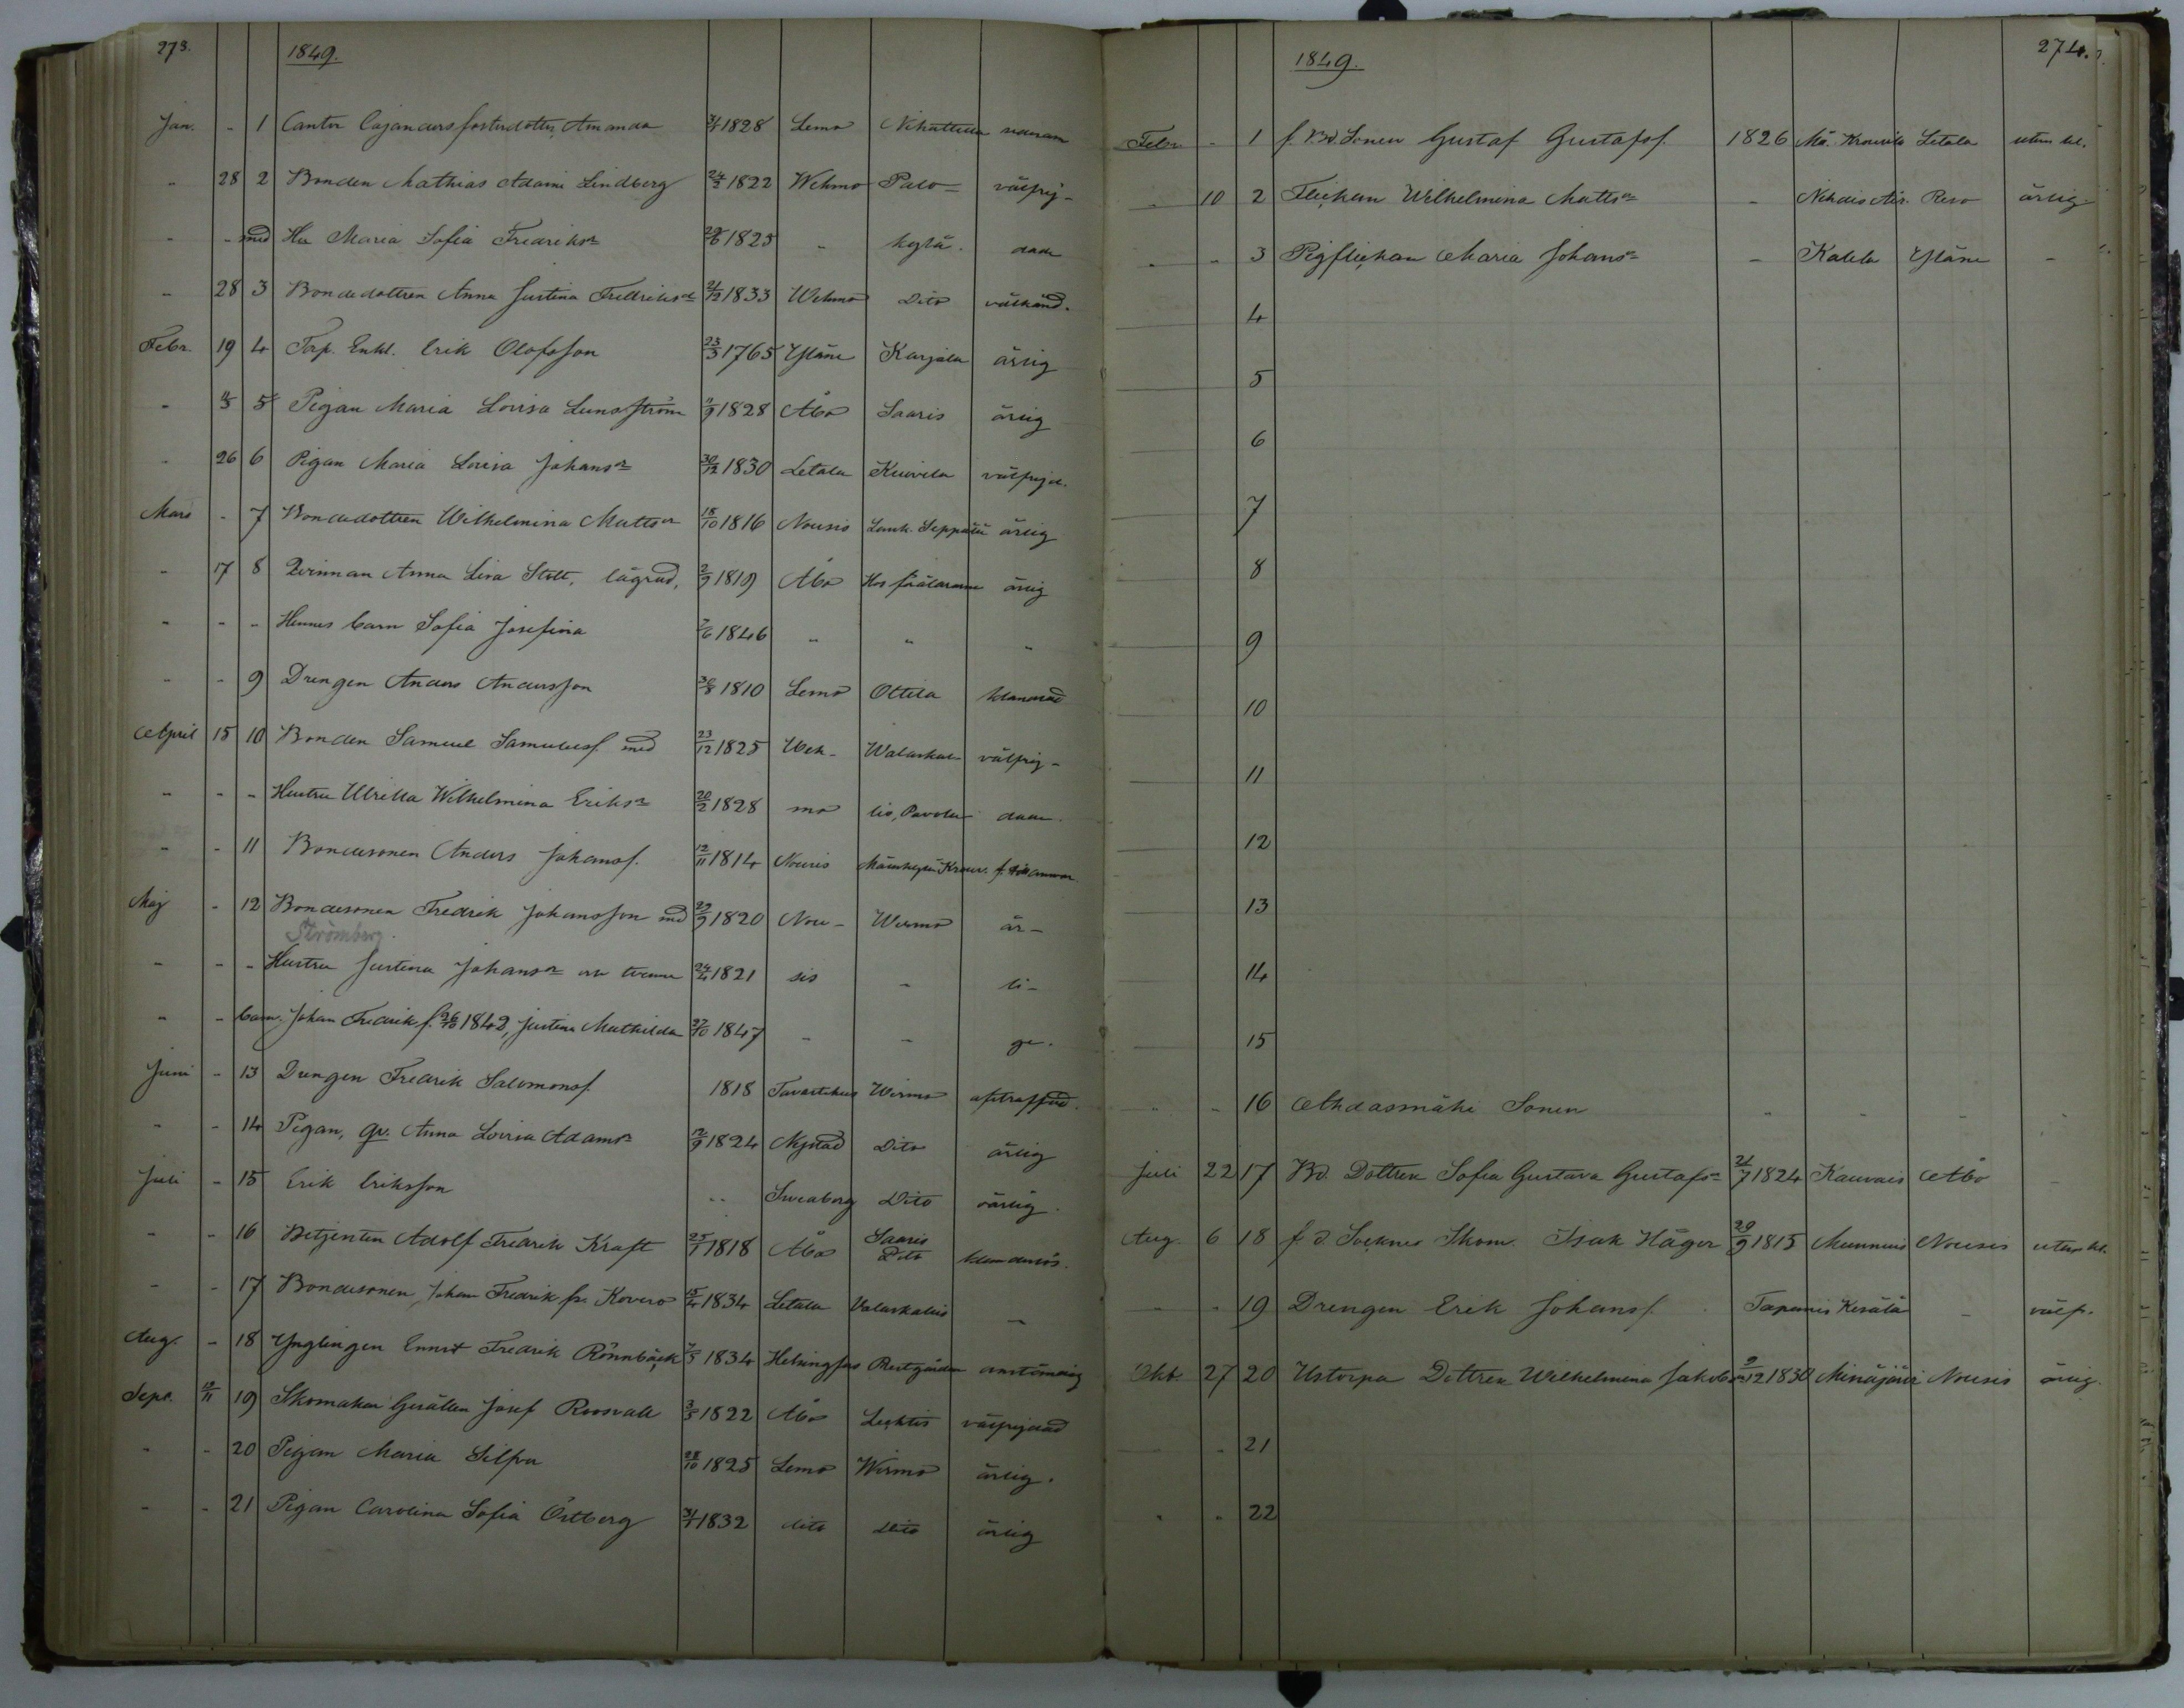 273.
1849.
Jan. - 1 Cantor Cajanders fosterdotter, Amanda 1828 Lemo Nihattula
" 28 2 Bonden Mathias Adami Lindberg 24/2 1822 Wehmo Palo= välfrej-
" " med Hu Maria Sofia Fredriksdr 1825 " kylä. dade
" 28 3 Bondedottren Anna Justina Fredriksdr 21/12 1833 Wehmo Dito välkänd.
Febr. 19 4 Torp. Enkl. Erik Olofsson 23/3 1765 Yläne Karjala ärlig
" 5 Pigan Maria Lovisa Lunström 11/9 1828 Åbo Saaris ärlig
" 26 6 Pigan Maria Lovisa Johansdr 30/12 1830 Letala Kuivela välfrejd.
Mars - 7 Bondedottren Wilhelmina Mattsdr 18/10 1816 Nousis Lank. Seppälä ärlig
" 17 8 Qvinnan Anna Lisa Stolt, lägrad, 2/9 1819 Åbo Hos föräldrarne ärlig
" - - Hennes barn Sofia Josefina 7/6 1846 " " "
" - 9 Drengen Anders Andersson 30/8 1810 Lemo Ottila klandrad
April 15 10 Bonden Samuel Samuelss. med 23/12 1825 Weh- Walaskal- välfrej-
" - - Hustru Ulrika Wilhelmina Eriksdr 20/2 1828 mo lis, Pavola dade.
" - 11 Bondesonen Anders Johanss. 12/11 1814 Nousis Mäenkylä Krouv.
Maj - 12 Bondesonen Fredrik Johansson med 29/9 1820 Nou- Wirmo är-
Strömberg.
" - - Hustru Justina Johansdr o. tvenne 24/4 1821 sis - li-
" - barn. Johan Fredrik f. 26/10 1842, Justina Mathilda 27/10 1847 - - ge.
Juni - 13 Drengen Fredrik Salomonss. 1818 Tavastehus Wirmo afstraffad.
" - 14 Pigan, qv. Anna Lovisa Adamsdr 12/9 1824 Nystad Dito ärlig
Juli - 15 Erik Eriksson " Sveaborg Dito ärlig.
" - 16 Betjenten Adolf Fredrik Kraft 25/1 1818 Åbo Saaris Dito klanderlös.
" - 17 Bondesonen Johan Fredrik fr. Kovero 15/4 1834 Letala Valaskallis -
Aug. - 18 Ynglingen Ernst Fredrik Rönnbäck 7/5 1834 Helsingfors Prestgården anständig
Sept. 19/11 19 Skomakar Gesällen Josef Roosvall 3/5 1822 Åbo Lecktis välfrejdad
" - 20 Pigan Maria Silfva 28/10 1825 Lemo Wirmo ärlig.
" - 21 Pigan Carolina Sofia Östberg 31/1 1832 dito dito ärlig
274.
1849.
Febr. - 1 f. Bd. Sonen Gustaf Gustafss. 1826 Mä. Krouvila Letala utan kl.
" 10 2 Flickan Wilhelmina Mattsdr - Nihais Reso ärlig
" " 3 Pigflickan Maria Johansdr - Kalela Yläne -
4
5
6
7
8
9
10
11
12
13
14
15
" - 16 Ahdasmäki Sonen " - - -
Juli 22 17 Bd. Dottren Sofia Gustava Gustafsdr 21/7 1824 Kauvais Åbo -
Aug. 6 18 f. d. Sockne Skom. Isak Häger 29/9 1815 Munnuis Nousis utan kl.
" " 19 Drengen Erik Johanss. Tapanis Kesälä - välf.
Okt. 27 20 Ustorpa Dottren Wilhelmina Jakobsdr 9/12 1830 Minäjärvi Nousis ärlig.
" 21
" " 22